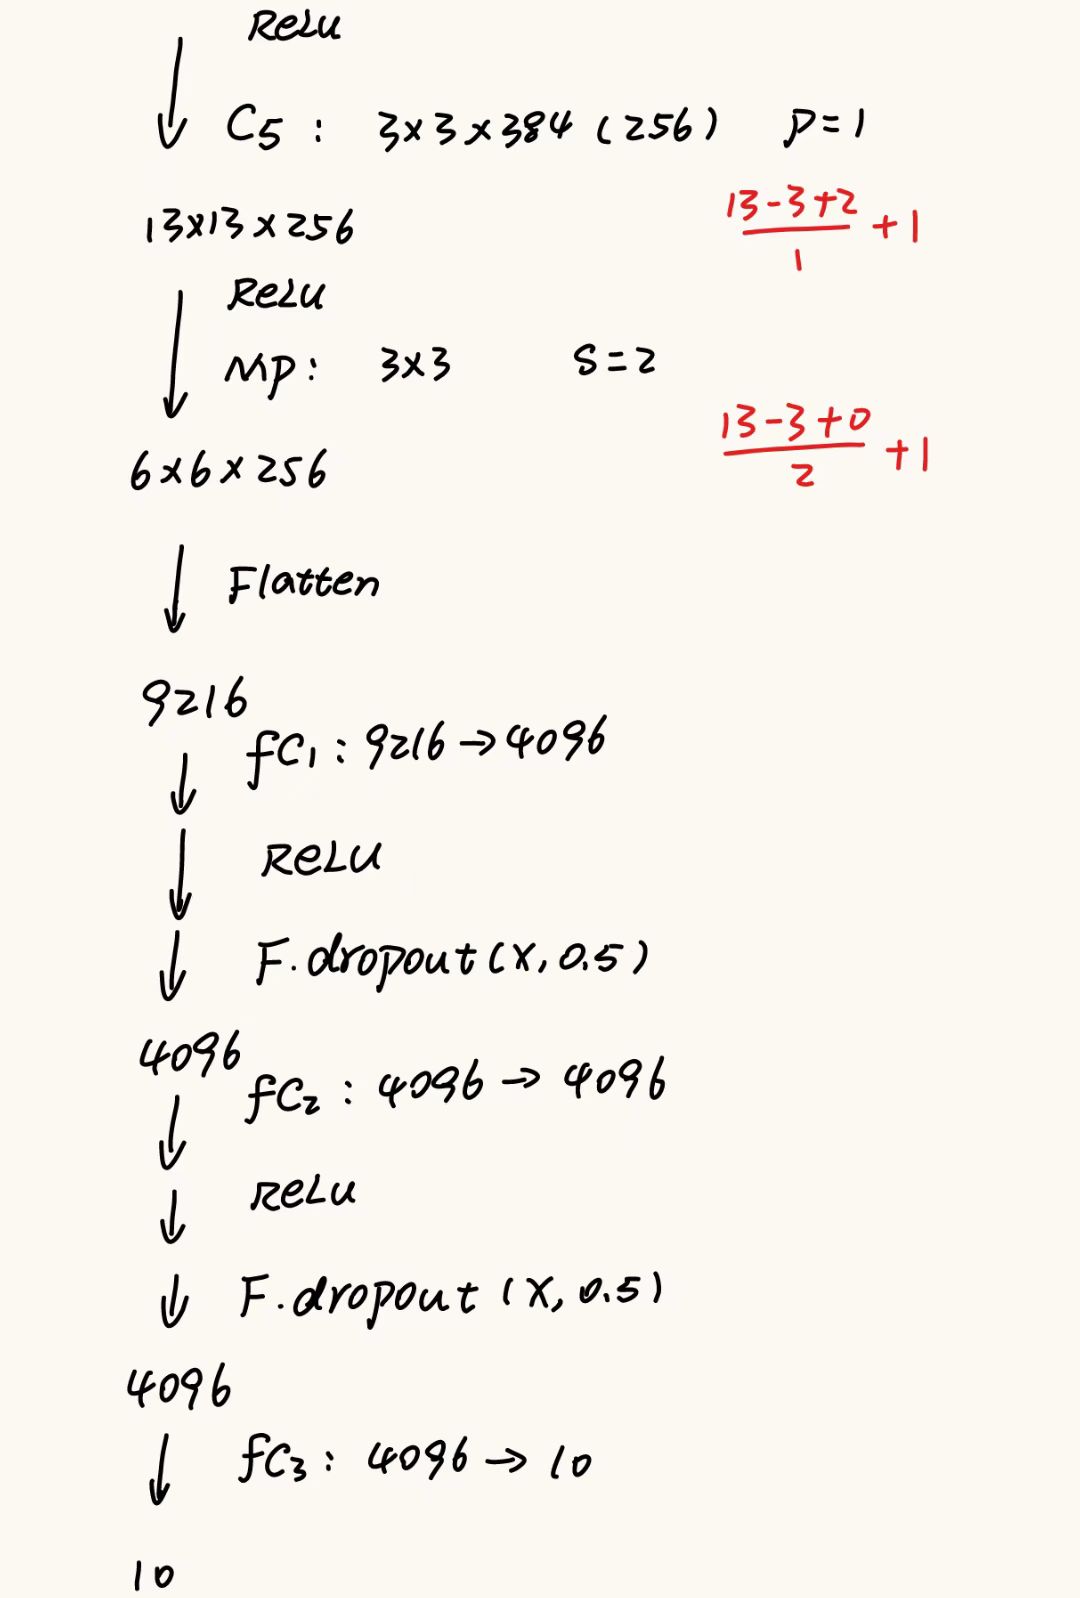 ReLu
C5 : 3×3×384 (256) P=1
13×13×256
(13-3+2)/1 + 1
ReLu
MP: 3×3 S=2
(13-3+0)/2 + 1
6×6×256
Flatten
9216
fC1 : 9216→4096
ReLU
F.dropout(x, 0.5)
4096
fC2 : 4096 → 4096
ReLu
F.dropout (x, 0.5)
4096
fC3 : 4096 → 10
10